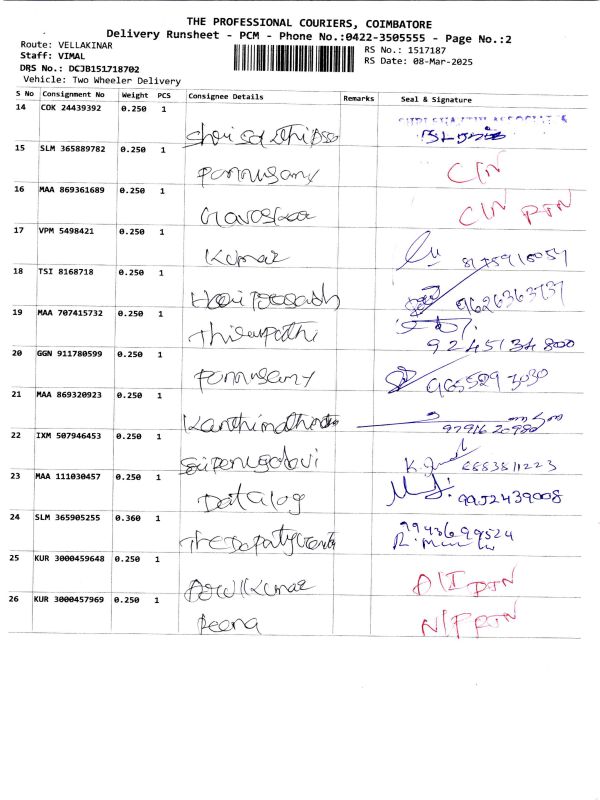 THE PROFESSIONAL COURIERS, COIMBATORE
Delivery Runsheet - PCM - Phone No.:0422-3505555 - Page No.:2
Route: VELLAKINAR
Staff: VIMAL
DRS No.: DCJB151718702
Vehicle: Two Wheeler Delivery
RS No.: 1517187
RS Date: 08-Mar-2025
S No Consignment No Weight PCS Consignee Details Remarks Seal & Signature
14 COK 24439392 0.250 1
15 SLM 365889782 0.250 1 Ponnusamy C/N
16 MAA 869361689 0.250 1 C/N RTN
17 VPM 5498421 0.250 1 Kumar
18 TSI 8168718 0.250 1 Hariprasadh 9626363737
19 MAA 707415732 0.250 1 Thirupathi 9245134800
20 GGN 911780599 0.250 1 Ponnusamy
21 MAA 869320923 0.250 1
22 IXM 507946453 0.250 1
23 MAA 111030457 0.250 1 Datalog 9952439008
24 SLM 365905255 0.360 1 9943699524
25 KUR 3000459648 0.250 1 Arulkumar RTN
26 KUR 3000457969 0.250 1 Reena RTN